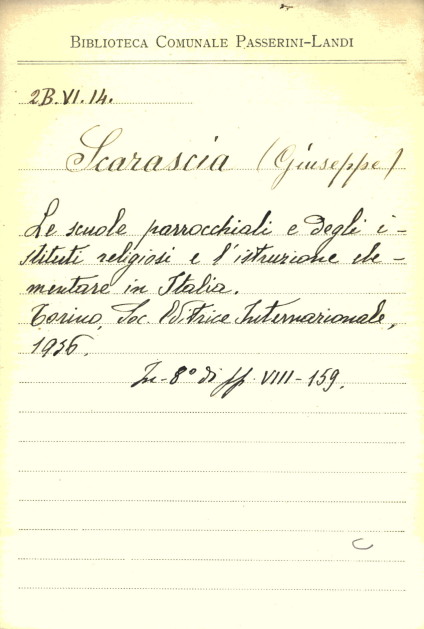 BIBLIOTECA COMUNALE PASSERINI-LANDI
2B.VI.14.
Scarascia (Giuseppe)
Le scuole parrocchiali e degli i-
stituti religiosi e l'istruzione ele-
mentare in Italia.
Torino, Soc. Editrice Internazionale,
1936.
In-8° di pp. VIII-159.